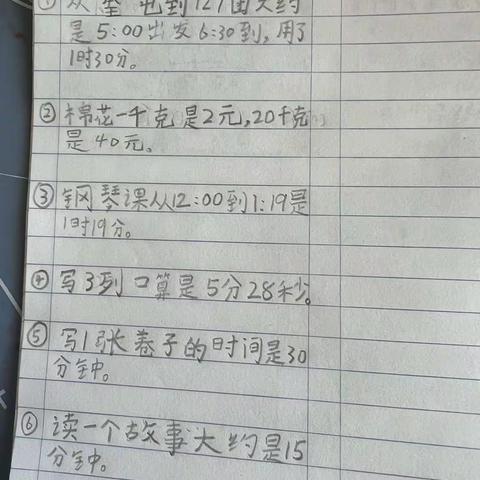 ① 从 到 大约
是5:00出发6:30到,用了
1时30分。
②棉花一千克是2元,20千克
是40元。
③钢琴课从12:00到1:19是
1时19分。
④写3列口算是5分28秒。
⑤写1张卷子的时间是30
分钟。
⑥读一个故事大约是15
分钟。